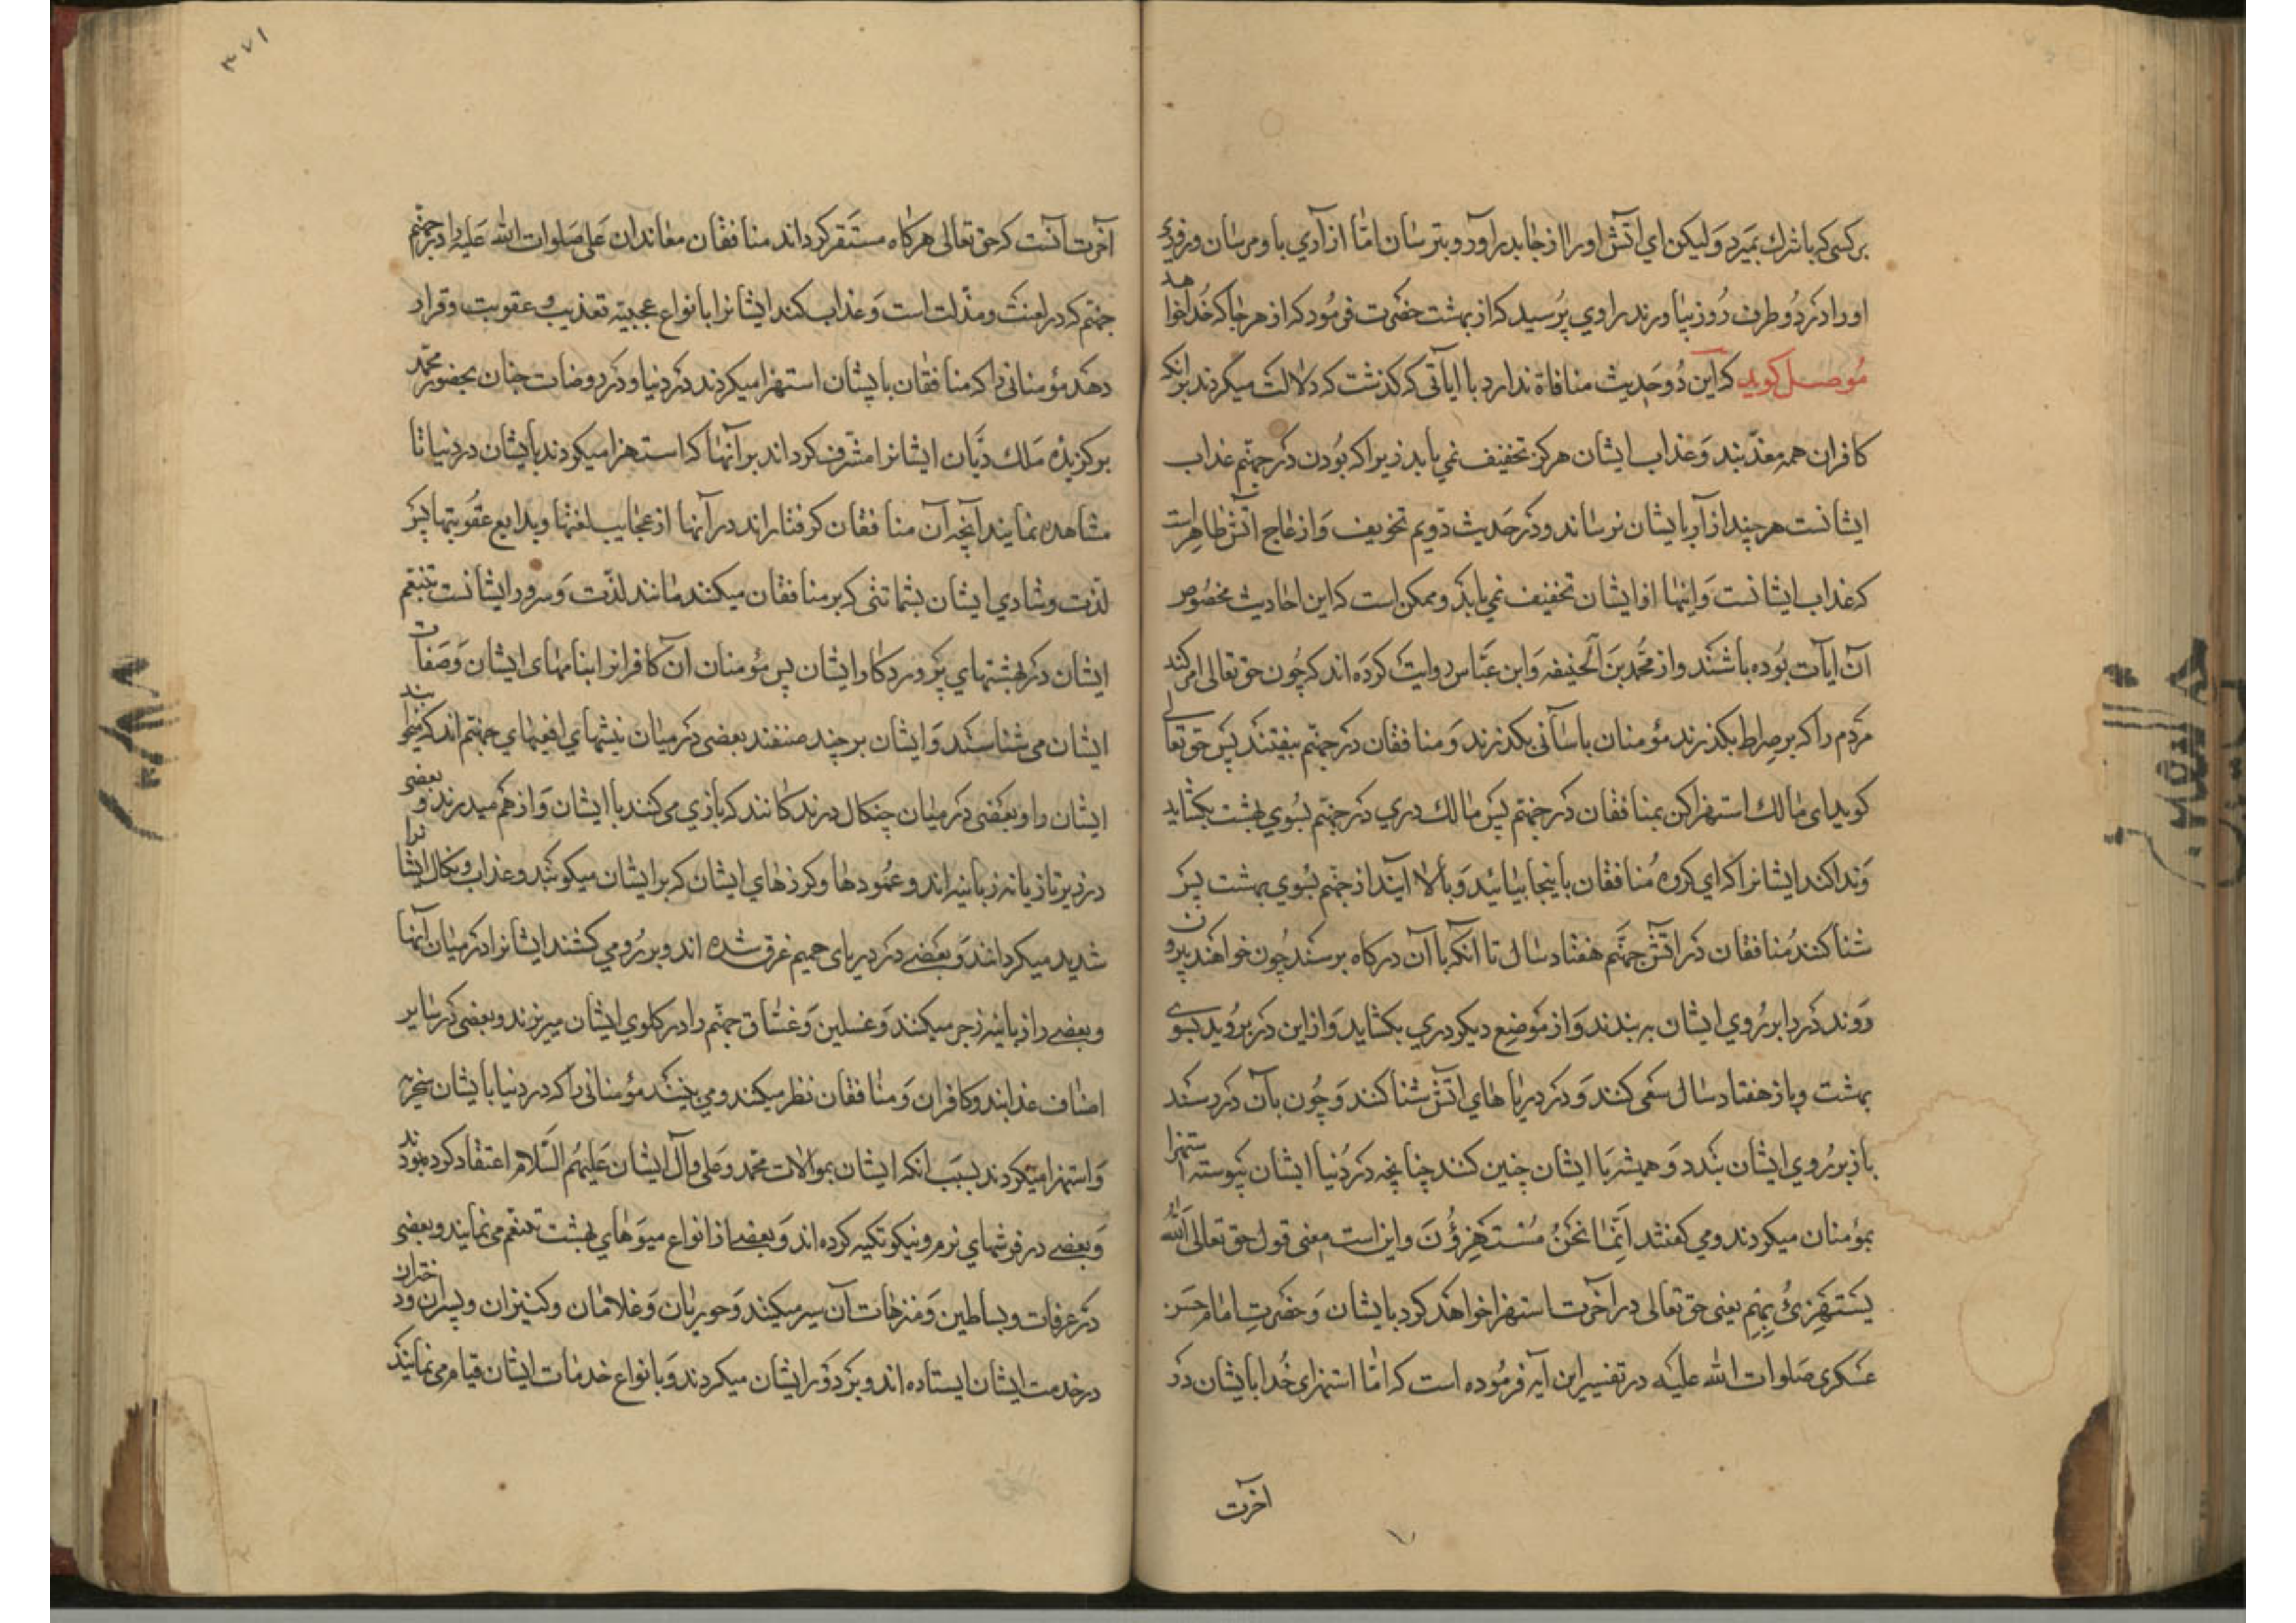 بر کسی که باشرك بمیرد وَلیکن ای آتش اورا از جا بدر آورد و بترسان امّا از آزاری باو مرسان و روزی
اورا در دُو طرف رُوز بیاورند راوي پُرسید که از بهشت حضرت فرمُود که از هر جا که خُدا خواهد
مُوصل کوید که این دُو حَدیث منافاة ندارد با آیاتی که کذشت که دلالت میکردند بر آنکه
کافران همه معذّبند وَعذاب ایشان هرکز تخفیف نمي یابد زیرا که بُودن دَر جهنّم عذاب
ایشانست هر چند ازآر بایشان نرساند و دَر حَدیث دّویم تخویف وَازعاج آتش ظاهِر است
که عذاب ایشانست وَاینها از ایشان تخفیف نمي یابَد وممکن است که این احادیث مخصُوص
آن ایات بُوده باشند واز محُمّد بَن الحنیفه وَابن عبّاس روایت کردَه اند که چُون حق تعالی امر کند
مَردم را که بر صِراط بکذرند مؤمنان باسانی بکذرند وَمنافقان دَر جهنّم بیفتند پس حق تعالی
کوید ای مٰالك استهزا کن بمنافقان دَر جهنّم پس مٰالك دري دَر جهنّم بسُوي بهشت بکشاید
وَندا کند ایشانرا که اي کروه مُنافقان باینجا بیائید وَبالا آیند از جهنّم بسُوي بهشت پس
شنا کنند مُنافقان دَر آتش جهنّم هفتاد سٰال تا آنکه با آن درکاه برسند چُون خواهند بیرون
رَوند دَر را بر رُوي ایشان به بندند وَاز مَوضع دیکر دري بکشاید وَاز این دَر برُوید بسوي
بهشت وباز هفتاد سٰال سَعی کنند وَدَر دریا هاي آتش شنا کنند وَچُون بآن دَر رسند
باز بر رُوي ایشان بنَدد وَهمیشه با ایشان چنین کنند چنانچه دَر دُنیا ایشان پیَوسته استهزا
بمؤمنان میکردند ومي کفتند اِنّمٰا نحَنُ مُسْتَهِزؤُنَ واین است معنی قول حق تعالی اَللهُ
یَسْتَهِزئُ بِهِم یعنی حق تعالی در آخرت استهزا خواهَد کرد بایشان وَحضَرتِ امٰام حسَن
عَسکری صَلوات الله علیَه در تفسیر این آیه فرمُوده است که امّا استهزای خُدا بایشان دَر
اخرت
٣٧١
آخرت آنست که حق تعالی هرکاه مستَقر کرداند منافقان معٰاندان عَلی صَلوات الله عَلیه را در جهنّم
جهنّم که در لعنت ومذّلت است وَعذاب کند ایشانرا بانواع عجیبه تعذیب و عقوبت وقرار
دهَد مؤمنانی را که منافقان بایشان استهزا میکردند دَر دنیا ودَر روضات جنان بحضور محمّد
برکزیدَه مَلك دیّان ایشانرا مشّرف کرداند بر آنهٰا که استهزا میکردند بایشان در دنیا تا
مشاهده نمایند آنچه آن منافقان کرفتاراند در آنها از عجٰایب لعنتها وبدایع عقُوبتها پس
لذّت وشادي ایشان بشماتتی که بر منافقان میکنند مٰانند لذّت وَسرور ایشانست تنبعّم
ایشان دَر بهشتهاي پَروردکار ایشان پس مؤمنان آن کافرانرا بنامهٰاي ایشان وَصَفات
ایشان مي شناسند وَایشان بر چند صنفند بعضي دَر میان نیشهاي افعیهٰاي جهنّم اند که میخایند
ایشان را وبعَضي دَر میٰان چنکال درندکانند که بازي مي کنند با ایشان وَاز هَم میدرند و بعضی
در زیر تازیانه زبانیه اند وعمُودها وکرزهٰاي ایشان که بر ایشان میکوبند وعذاب و نکال ایشانرا
شدید میکردانند وَبعَضے دَر دریاي حمیم غرق شده اند وبر رُو مي کشند ایشانرا دَر میان آنها
وبعضے را زبانیه زجر میکنند وَغسلین وَغسّاق جهنّم را در کلوي ایشان میریزند وبعضی دَر سٰایر
اصناف عذابند وکافران وَمنٰافقان نظر میکنند ومي بینند مؤمنانی را که در دنیا بایشان سخریه
وَاستهزا میکردند بسبَب انکه ایشان بموالات محمّد وعَلي وآل ایشان عَلیهُم السّلام اعتقاد کرده بودند
وَبعضے در فرشهاي نرم ونیکو تکیه کرده اند وَبعضے از انواع میوَهاي بهشت تنعّم مي نمایند وبعضی
دَر غرفات وبساطین وَمتنزهات آن سیر میکنند وَحوریان وَغلامٰان وکنیزان وپسران ودختران
در خدمت ایشان ایستاده اند وبر دَور ایشان میکردند وَبانواع خدمات ایشان قیام مي نمایند